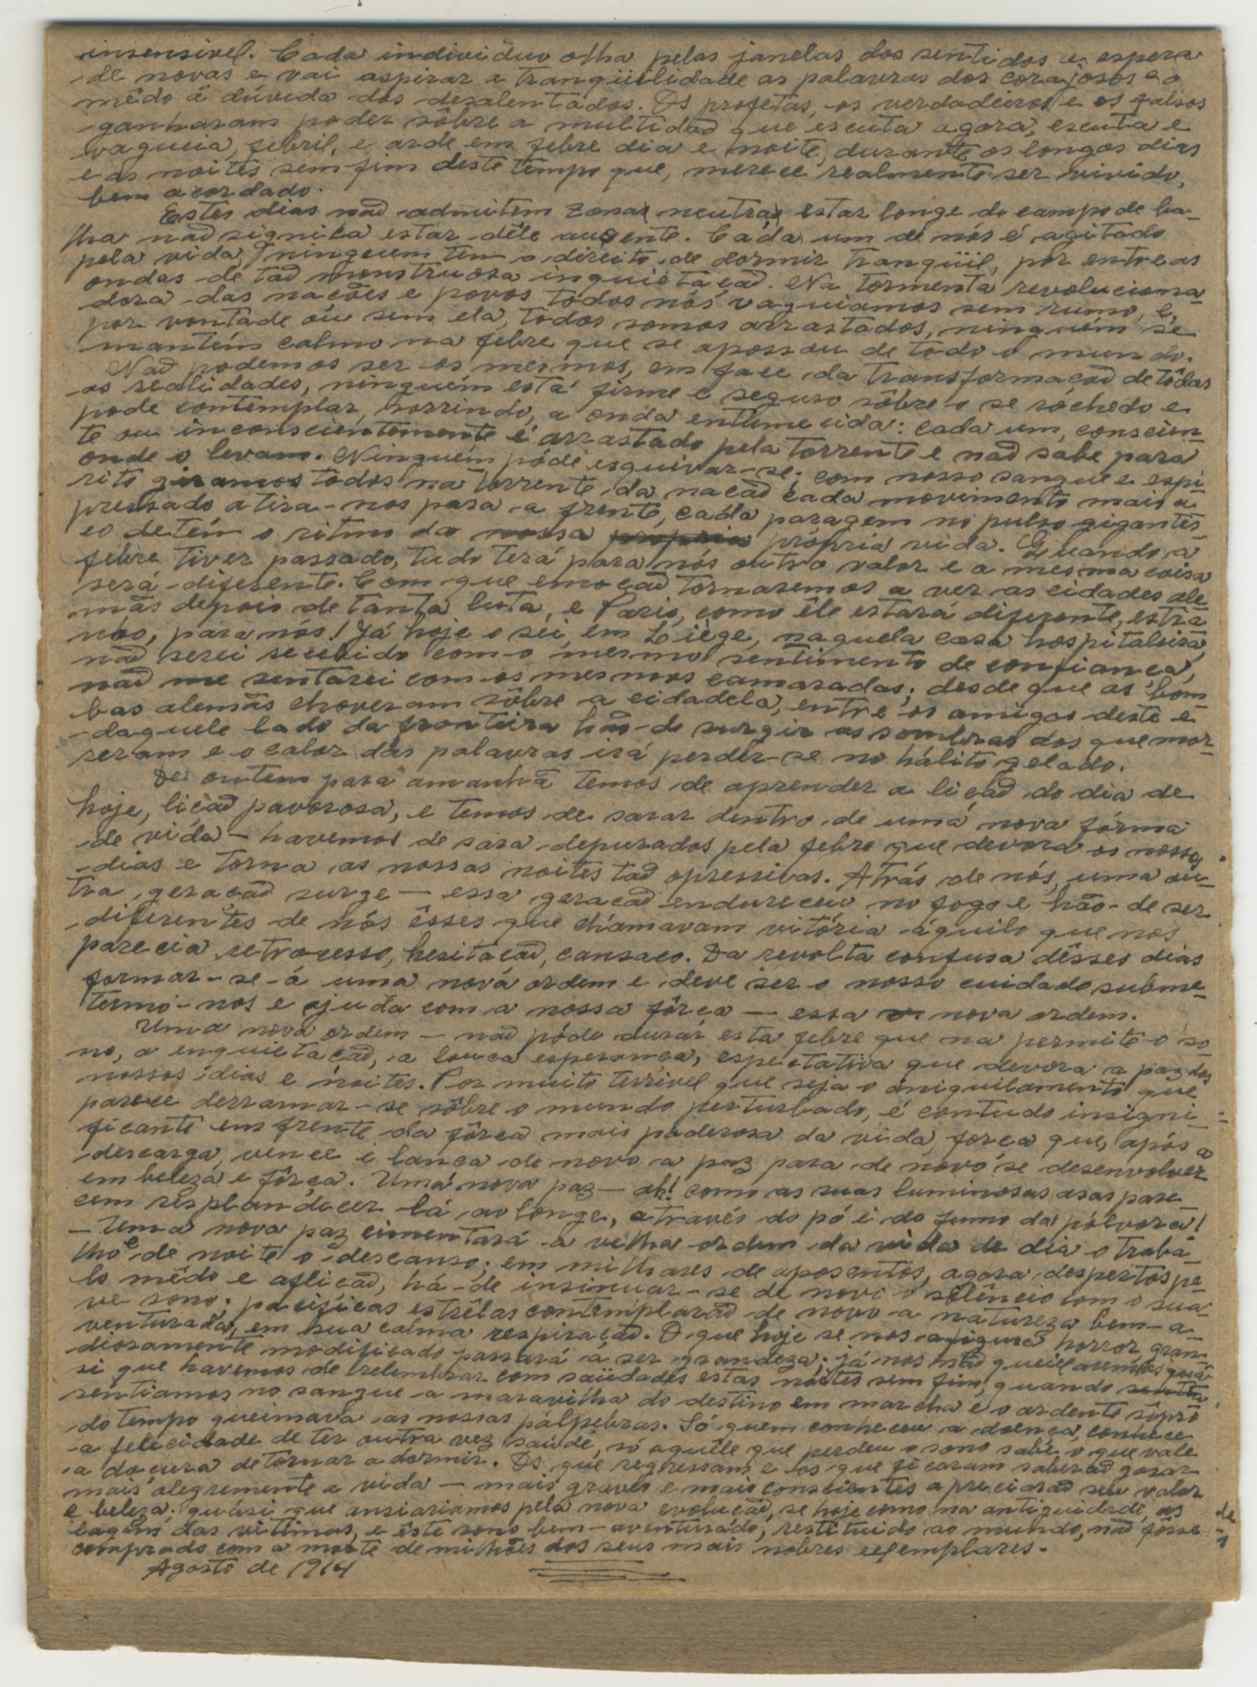 insensivel. Cada individuo olha pelas janelas dos sentidos e espera
de novas e vai aspirar a tranqüilidade as palavras dos corajosos e o
mêdo á dúvida dos desalentados. Os profetas, os verdadeiros e os falsos
ganharam poder sôbre a multidaõ que escuta agora, escuta e
vagueia, febril, e arde em febre dia e noite, durante os longos dias
e as noites sem fim deste tempo que, merece realmente ser vivido,
bem acordado.
Estes dias naõ admitem zonas neutras estar longe do campo de ba-
lha naõ signica estar dêle ausente. Cada um de nós é agitado
pela vida, ninguem tem o direito de dormir tranqüil, por entre as
ondas de taõ monstruosa inquietaçaõ. Na tormenta revoluciona-
dora das nacões e povos todos nós vaguiamos sem rumo, e,
por vontade ou sem ela, todos somos arrastados, ninguem se
mantém calmo na febre que se apossou de tôdo o mundo.
Naõ podemos ser os mesmos, em face da transformacaõ de tôdas
as realidades, ninguém está firme e seguro sôbre o se róchedo e
pode contemplar, sorrindo, a onda entumecida: cada um, conscien-
te ou inconscientemente é arrastado pela torrente e naõ sabe para
onde o levam. Ninguém póde esquivar-se; com nosso sangue e espi-
rito giramos todos na torrente da nacaõ cada movimento mais a-
pressado atira-nos para a frente, cada paragem no pulso gigantes-
co detém o ritmo da nossa própria vida. Quando a
febre tiver passado, tudo terá para nós outro valor e a mesma coisa
será diferente. Com que emocaõ tornaremos a ver as cidades ale-
mãs depois de tanta luta, e Paris, como ele estará diferente, estra-
nho, para nós! Já hoje o sei, em Liège, naquela casa hospitaleira,
naõ serei recebido com o mesmo sentimento de confianca,
naõ me sentarei com os mesmos camaradas; desde que as bom-
bas alemãs choveram sôbre a cidadela, entre os amigos deste e
daquele lado da fronteira hão-de surgir as sombras dos que mor-
reram e o calor das palavras irá perder-se no hálito gelado.
De ontem para amanhã temos de aprender a liçaõ do dia de
hoje, liçaõ pavorosa, e temos de sarar dentro de uma nova fórma
de vida - havemos de sara depurados pela febre que devora os nossos
dias e torna as nossas noites taõ opressivas. Atrás de nós, uma ou-
tra geracaõ surge — essa geracaõ endureceu no fogo e hão-de ser
diferentes de nós êsses que chamavam vitória áquilo que nos
parecia retrocesso, hesitacaõ, cansaco. Da revolta confusa dêsses dias
formar-se-á uma nová ordem e deve ser o nosso cuidado subme-
termo-nos e ajuda com a nossa fôrca — essa nova ordem.
Uma nova ordem — naõ póde durar esta febre que na permite o so-
no, a enquietacaõ, a louca esperanca, espetativa que devora a paz dos
nossos dias e noites. Por muito terrivel que seja o aniquilamento que
parece derramar-se sôbre o mundo perturbado, é contudo insigni-
ficante em frente da fôrca mais poderosa da vida, forca que, após a
descarga, vence e lanca de novo a paz para de novo se desenvolver
em beleza e fôrca. Uma nova paz — ah! como as suas luminosas asas pare-
cem resplandecer lá ao longe, através do pó e do fumo da pólvora!
— Uma nova paz cimentará a velha ordem da vida de dia o traba-
lho e de noite o descanso; em milhares de aposentos, agora despertos pe-
lo mêdo e aflicaõ, há-de insinuar-se de novo o silêncio com o sua-
ve sono; pacíficas estrelas contemplaraõ de novo a natureza bem-a-
venturada, em sua calma respiraçaõ. O que hoje se nos afigura horror gran-
diosamente modificado passará a ser grandeza; já nos naõ queixaremos quá-
si que havemos de relembrar com saüdades estas noites sem fim, quando
sentiamos no sangue a maravilha do destino em marcha e o ardente sôpro
do tempo queimava as nossas palpebras. Só quem conheceu a doença, conhece
a felicidade de ter outra vez saúde, só aquêle que perdeu o sono sabe o que vale
a docura de tornar a dormir. Os que regressam e os que ficaram saberaõ gosar
mais alegremente a vida — mais graves e mais conscientes apreciaraõ seu valor
e beleza: quási que ansiariamos pela nova evolucaõ, se hoje como na antiguidade, as
lagem das vitimas, e êste sono bem-aventurado, restituido ao mundo, naõ fôsse
comprado com a morte de milhões dos seus mais nobres exemplares.
Agosto de 1914